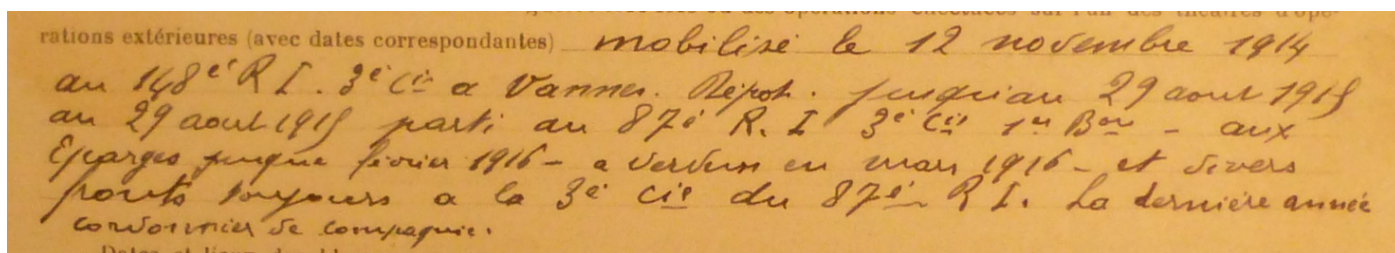 rations extérieures (avec dates correspondantes) mobilisé le 12 novembre 1914
au 148e R I. 3e Cie a Vannes. Dépot. jusqu'au 29 aout 1915
au 29 aout 1915 parti au 87e R. I 3e Cie 1er Bon - aux
Eparges jusque février 1916 - a Verdun en mars 1916 - et divers
fronts toujours a la 3e Cie du 87e R I. La dernière année
cordonnier de compagnie.